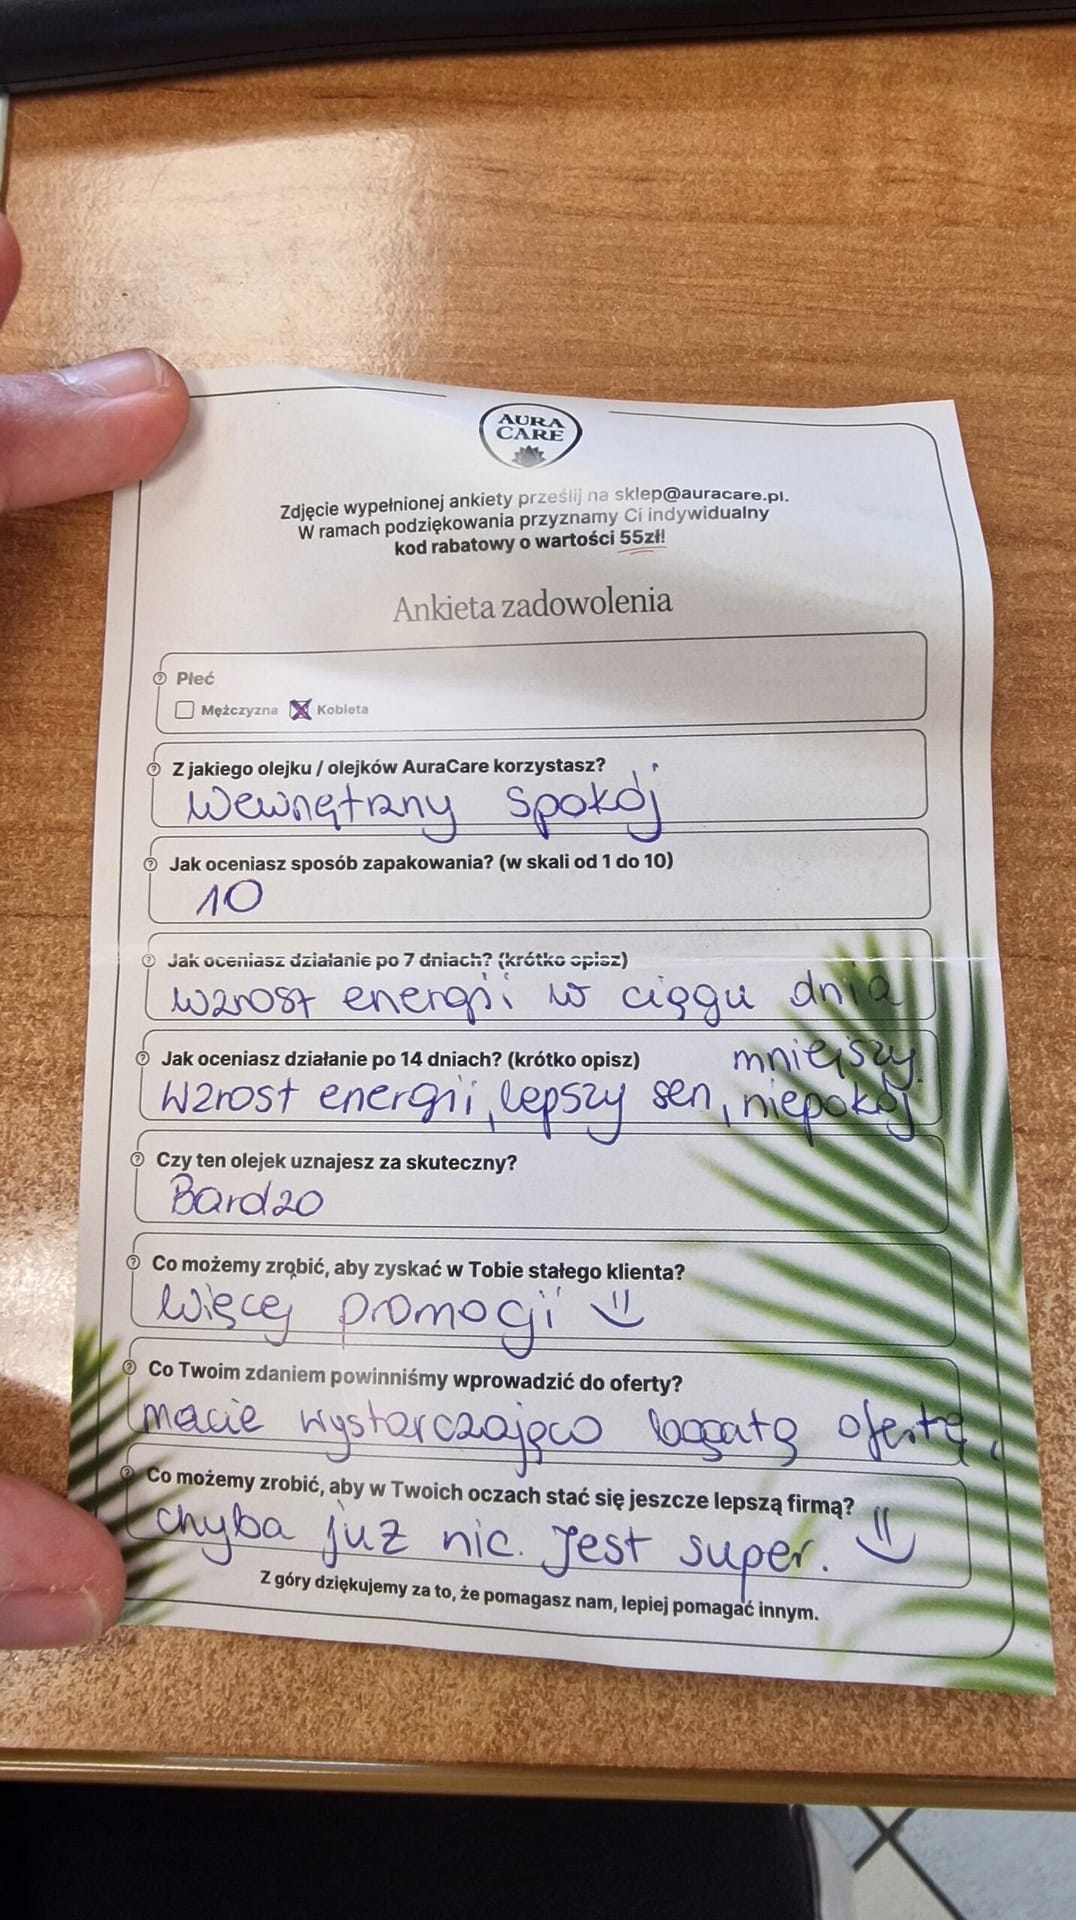 AURA
CARE
Zdjęcie wypełnionej ankiety prześlij na sklep@auracare.pl.
W ramach podziękowania przyznamy Ci indywidualny
kod rabatowy o wartości 55zł!
Ankieta zadowolenia
Płeć
Mężczyzna Kobieta
Z jakiego olejku / olejków AuraCare korzystasz?
Wewnętrzny Spokój
Jak oceniasz sposób zapakowania? (w skali od 1 do 10)
10
Jak oceniasz działanie po 7 dniach? (krótko opisz)
Wzrost energii w ciągu dnia
Jak oceniasz działanie po 14 dniach? (krótko opisz) mniejszy
Wzrost energii, lepszy sen, niepokój
Czy ten olejek uznajesz za skuteczny?
Bardzo
Co możemy zrobić, aby zyskać w Tobie stałego klienta?
Więcej promocji
Co Twoim zdaniem powinniśmy wprowadzić do oferty?
macie wystarczająco bogatą ofertę,
Co możemy zrobić, aby w Twoich oczach stać się jeszcze lepszą firmą?
chyba już nic. Jest super.
Z góry dziękujemy za to, że pomagasz nam, lepiej pomagać innym.